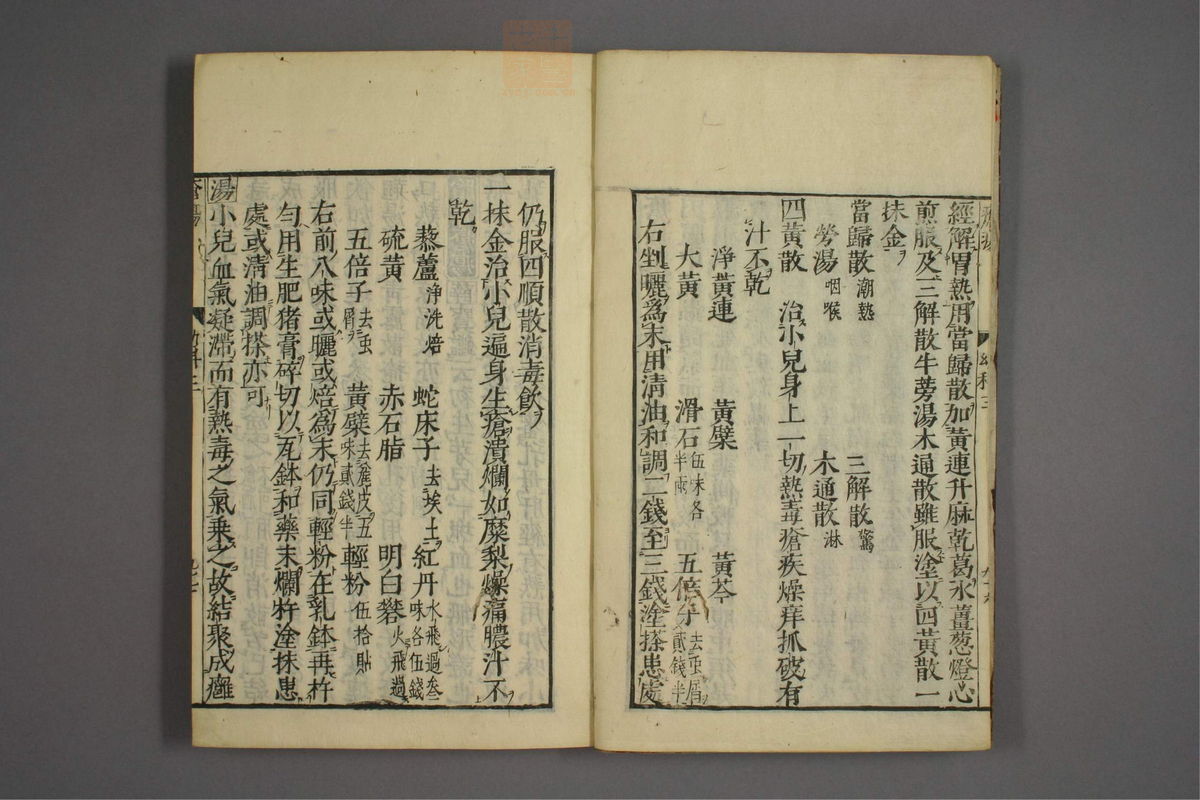 經解胃熱用當歸散加黃連升麻乾葛水薑葱燈心
煎服及三解散牛蒡湯木通散雖服塗以四黃散一
抹金
當歸散潮熱 三解散驚
蒡湯咽喉 木通散淋
四黃散 治小兒身上一切熱毒瘡疾燥痒抓破有
汁不乾
淨黃連 黃蘗 黃芩
大黃 滑石伍味各半兩 五倍子去虫屑貳錢半
右剉曬爲末用淸油和調二錢至三錢塗搽患處
仍服四順散消毒飮
一抹金治小兒遍身生瘡潰爛如糜梨燥痛膿汁不
乾
藜蘆淨洗焙 蛇床子去埃土 紅丹水飛過叁味各伍錢
硫黃 赤石脂 明白礬火飛過
五倍子去虫屑 黃蘗去麄皮五味貳錢半 輕粉伍拾貼
右前八味或曬或焙爲末仍同輕粉在乳鉢再杵
勻用生肥猪膏碎切以瓦鉢和藥末爛杵塗抹患
處或淸油調搽亦可
湯小兒血氣凝滯而有熱毒之氣乘之故結聚成癰